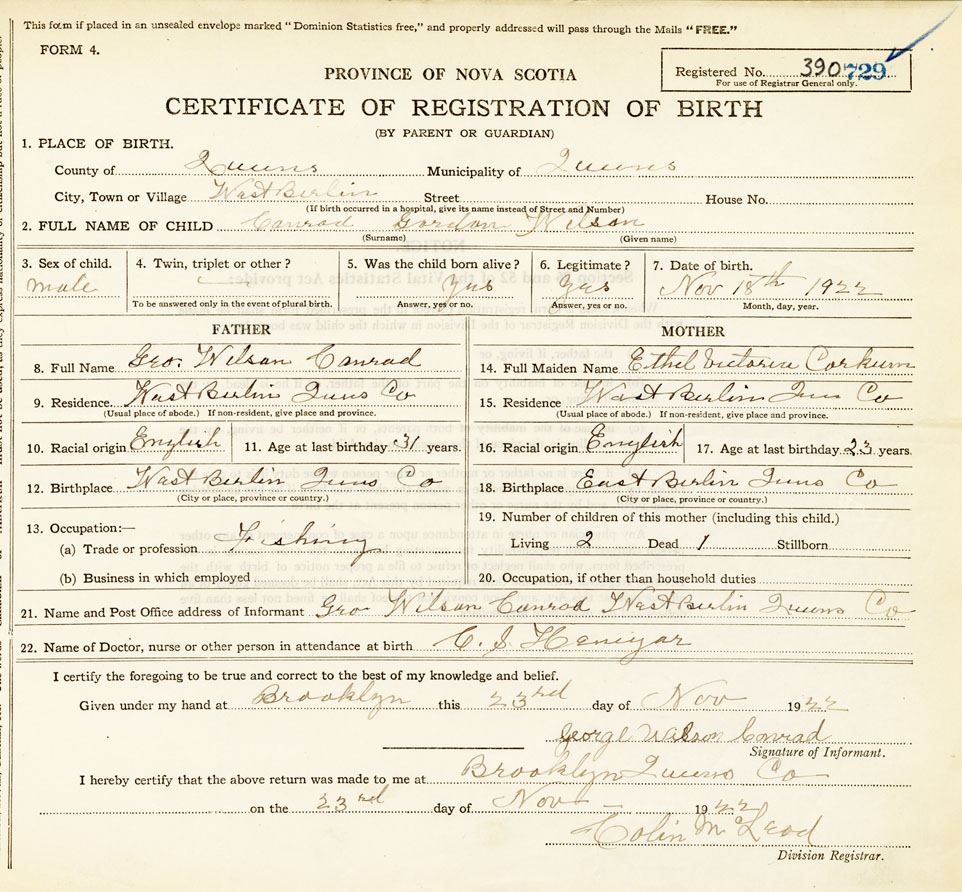 This form if placed in an unsealed envelope marked "Dominion Statistics free," and properly addressed will pass through the Mails "FREE."
FORM 4.
Registered No. 390 729
For use of Registrar General only.
PROVINCE OF NOVA SCOTIA
CERTIFICATE OF REGISTRATION OF BIRTH
(BY PARENT OR GUARDIAN)
1. PLACE OF BIRTH.
County of Queens Municipality of Queens
City, Town or Village West Berlin Street House No.
(If birth occurred in a hospital, give its name instead of Street and Number)
2. FULL NAME OF CHILD Conrad Gordon Wilson
(Surname) (Given name)
3. Sex of child. 4. Twin, triplet or other? 5. Was the child born alive? 6. Legitimate? 7. Date of birth.
male Yes Yes Nov 18th 1922
To be answered only in the event of plural birth. Answer, yes or no. Answer, yes or no. Month, day, year.
FATHER
8. Full Name Geo. Wilson Conrad
9. Residence. West Berlin Queens Co
(Usual place of abode.) If non-resident, give place and province.
10. Racial origin English 11. Age at last birthday 31 years.
12. Birthplace West Berlin Queens Co
(City or place, province or country.)
13. Occupation:—
(a) Trade or profession Fishing
(b) Business in which employed
MOTHER
14. Full Maiden Name Ethel Victoria Corkum
15. Residence West Berlin Queens Co
(Usual place of abode.) If non-resident, give place and province.
16. Racial origin English 17. Age at last birthday 23 years.
18. Birthplace East Berlin Queens Co
(City or place, province or country.)
19. Number of children of this mother (including this child.)
Living 2 Dead 1 Stillborn
20. Occupation, if other than household duties
21. Name and Post Office address of Informant Geo Wilson Conrad West Berlin Queens Co
22. Name of Doctor, nurse or other person in attendance at birth
I certify the foregoing to be true and correct to the best of my knowledge and belief.
Given under my hand at Brooklyn this 23rd day of Nov 1922
George Watson Conrad
Signature of Informant.
I hereby certify that the above return was made to me at Brooklyn Queens Co
on the 23rd day of Nov 1922
Colin McLeod
Division Registrar.